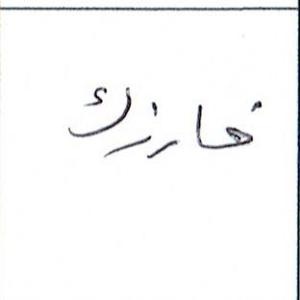 خارزك